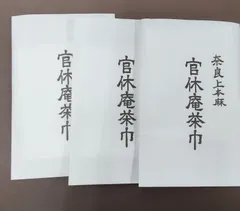 奈良上本麻
官休庵茶巾
官休庵茶巾
官休庵茶巾